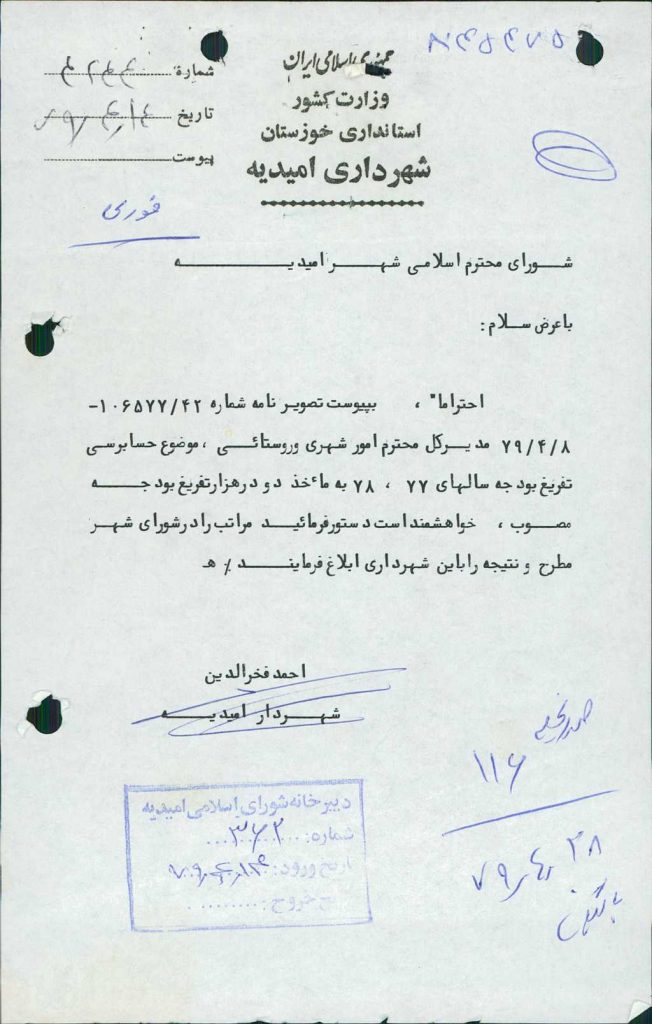 جمهوری اسلامی ایران
وزارت کشور
استانداری خوزستان
شهرداری امیدیه
شماره
تاریخ
پیوست
فوری
شورای محترم اسلامی شهر امیدیه
باعرض سلام :
احتراما" ، بپیوست تصویر نامه شماره ۱۰۶۵۷۷/۴۲-
۷۹/۴/۸ مدیرکل محترم امور شهری وروستائی ، موضوع حسابرسی
تفریغ بودجه سالهای ۷۷ ، ۷۸ به مأخذ دو درهزارتفریغ بودجه
مصوب ، خواهشمند است دستورفرمائید مراتب رادرشورای شهر
مطرح و نتیجه راباین شهرداری ابلاغ فرمایند / ه
احمد فخرالدین
شهردار امیدیه
دبیرخانه شورای اسلامی امیدیه
شماره :
تاریخ ورود :
خروج :
۱۱۶